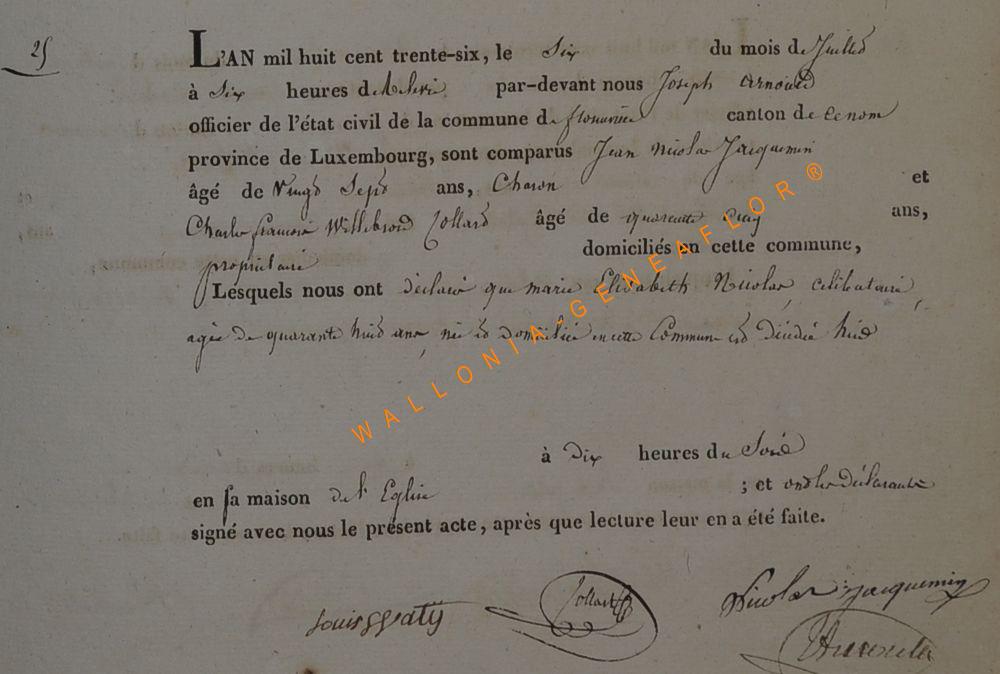 25
L'AN mil huit cent trente-six, le Six du mois de Juillet
à Six heures du par-devant nous Joseph Arnould
officier de l'état civil de la commune de canton de
province de Luxembourg, sont comparus Jean Nicolas Jacquemin
âgé de Vingt Sept ans, Charon et
Charles francois Willibrord Collard âgé de quarante Cinq ans,
propriétaire domiciliés en cette commune,
Lesquels nous ont déclaré que marie Elisabeth Nicolas, célibataire,
agée de quarante huit ans, née et domiciliée en cette Commune est décédée hier
à Dix heures du Soir
en sa maison de l'Eglise ; et ont les déclarants
signé avec nous le présent acte, après que lecture leur en a été faite.
Collard
Nicolas jacquemin
WALLONIA-GENEAFLOR®